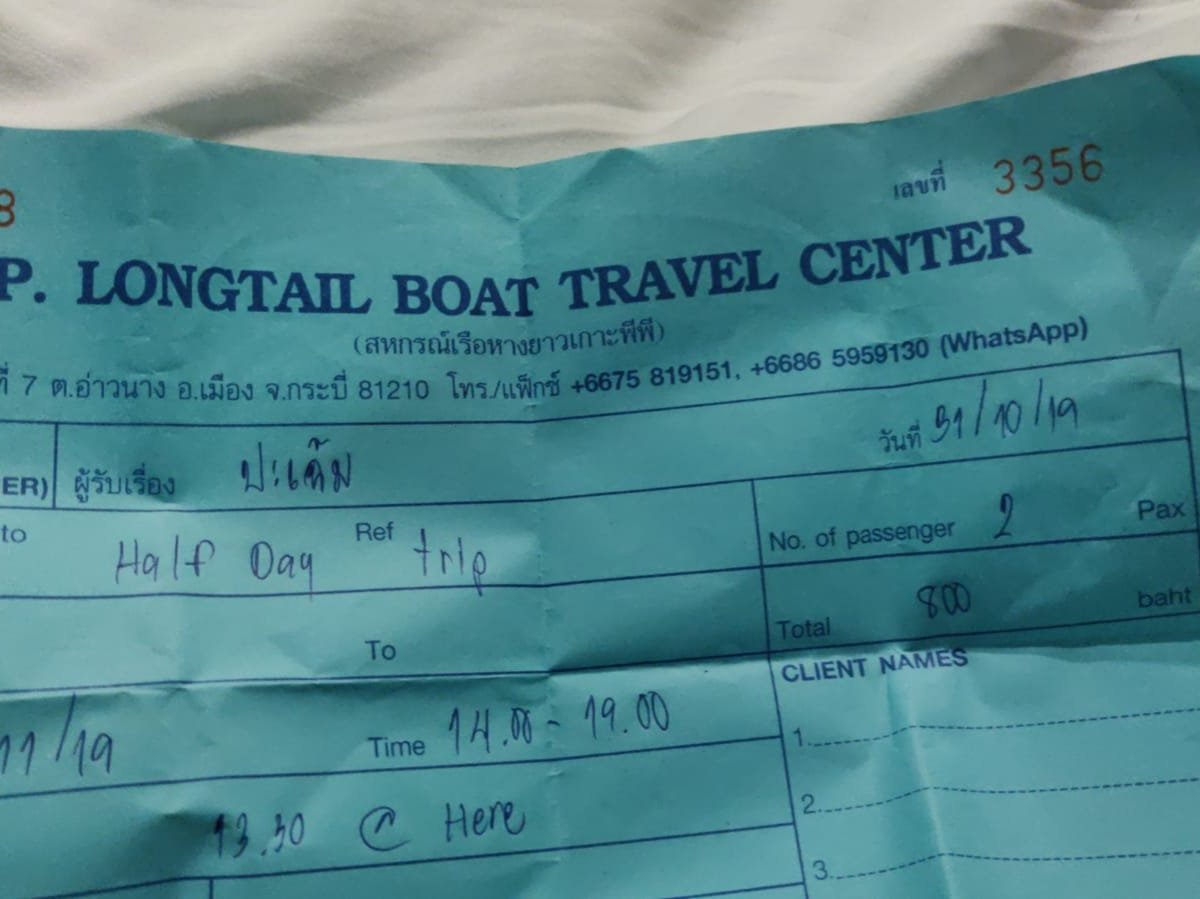 8 เลขที่ 3356
P. LONGTAIL BOAT TRAVEL CENTER
(สหกรณ์เรือหางยาวเกาะพีพี)
ที่ 7 ต.อ่าวนาง อ.เมือง จ.กระบี่ 81210 โทร./แฟ็กซ์ +6675 819151, +6686 5959130 (WhatsApp)
วันที่ 31/10/19
ER) ผู้รับเรื่อง
to Half Day Ref trip No. of passenger 2 Pax
To Total 800 baht
CLIENT NAMES
11/19 Time 14.00 - 19.00
1.
13.30 @ Here
2.
3.